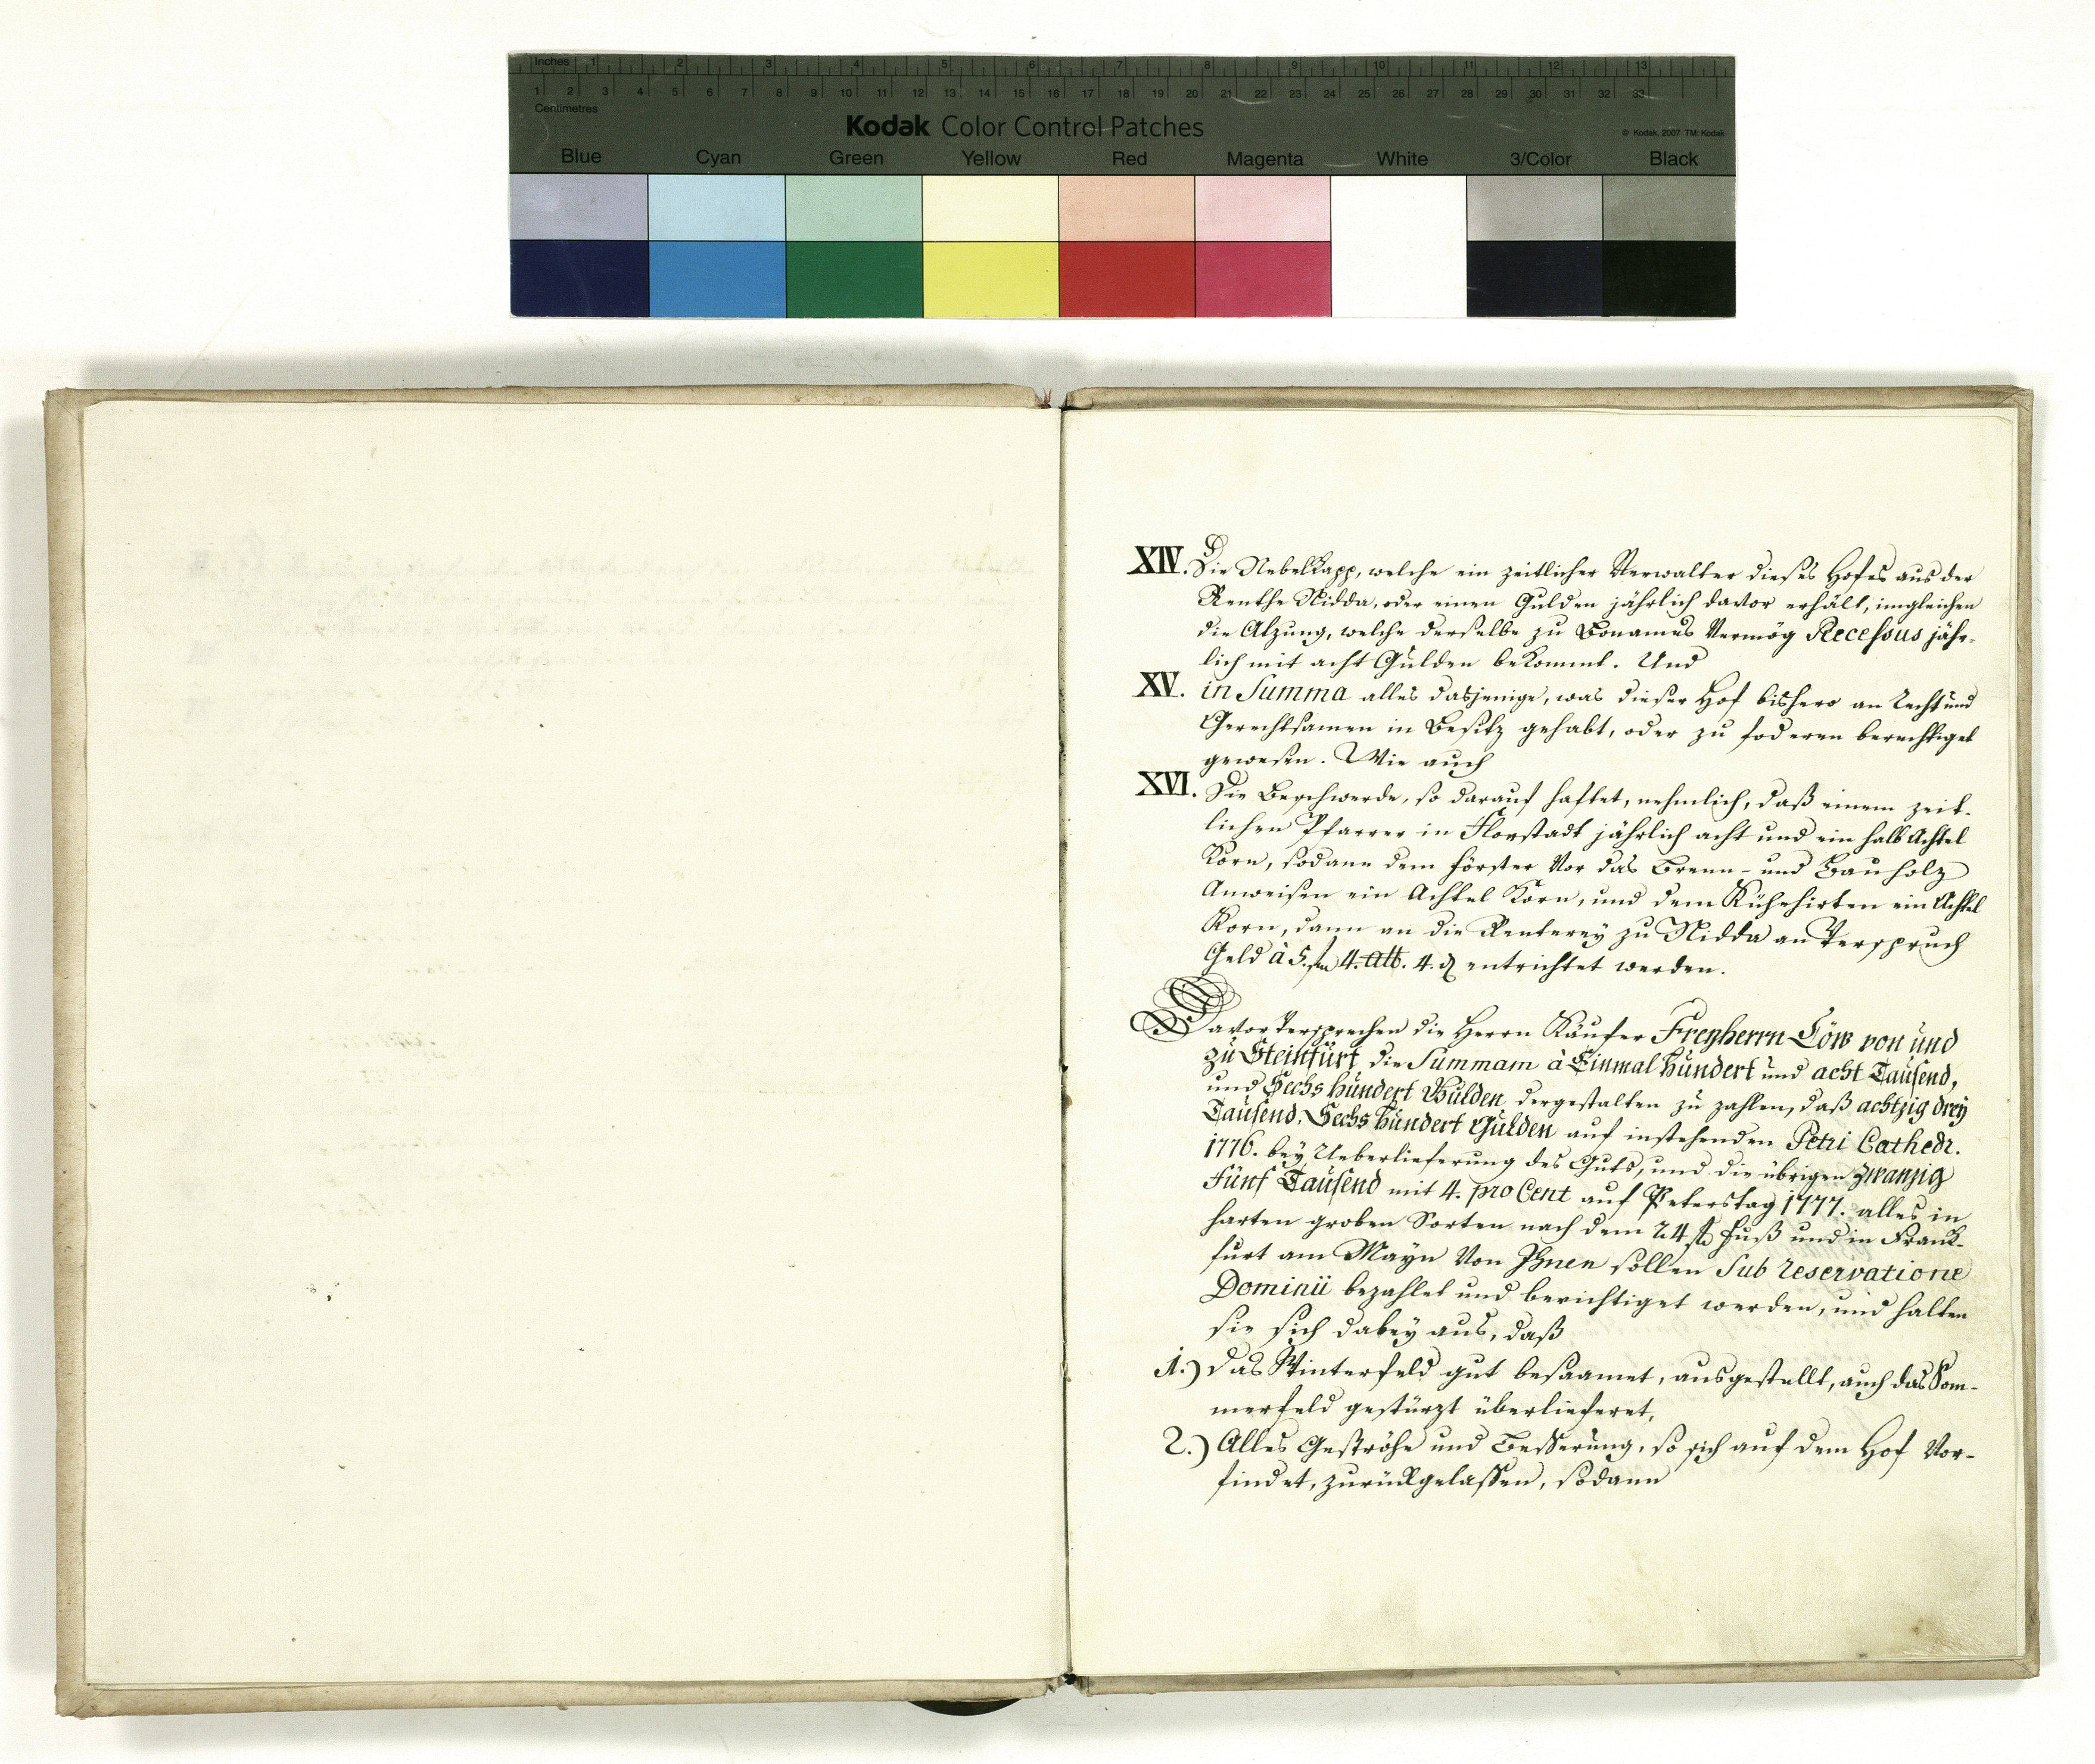 Inches 1 2 3 4 5 6 7 8 9 10 11 12 13
1 2 3 4 5 6 7 8 9 10 11 12 13 14 15 16 17 18 19 20 21 22 23 24 25 26 27 28 29 30 31 32 33
Centimetres
Kodak Color Control Patches
© Kodak, 2007 TM: Kodak
Blue Cyan Green Yellow Red Magenta White 3/Color Black
XIV. Die Nebelkapp, welche ein zeitlicher Verwalter dießes Hofes aus der
Renthe Nidda, oder einen Gulden jährlich davor erhält, imgleichen
die Atzung, welche derselbe zu Bonames Vermög Recessus jähr-
lich mit acht Gulden bekommt. Und
XV. in Summa alles dasjenige, was dieser Hof bishero an Recht und
Gerechtsamen in Besitz gehabt, oder zu foderen berechtiget
gewesen. Wie auch
XVI. Die Beschwerde, so darauf haftet, nehmlich, daß einem zeit-
lichen Pfarrer in Florstadt jährlich acht und ein halb Achtel
Korn, sodann dem Förster Vor das Brenn- und Bauholz
Anweisen ein Achtel Korn, und dem Kühehirten ein Achtel
Korn, dann an die Renterey zu Nidda an Verspruch
Geld à 5. fl 4. alb. 4. d entrichtet werden.
Davor Versprechen die Herrn Käufer Freyherrn Löw von und
zu Steinfurt die Summam à Einmal hundert und acht Tausend,
und Sechs hundert Gulden dergestalten zu zahlen, daß achtzig drey
Tausend, Sechs hundert Gulden auf instehenden Petri Cathedr.
1776. bey Ueberlieferung des Guts, und die übrigen zwanzig
Fünf Tausend mit 4. pro Cent auf Peterstag 1777. alles in
harten groben Sorten nach dem 24 fl Fuß und in Frank-
furt am Mayn Von Ihnen sollen Sub reservatione
Dominii bezahlet und berichtiget werden, und halten
sie sich dabey aus, daß
1.) Das Winterfeld gut besaamet, ausgestellt, auch das Som-
merfeld gestürzt überlieferet,
2.) Alles Geströhe und Besserung, so sich auf dem Hof Vor-
findet, zurückgelassen, sodann